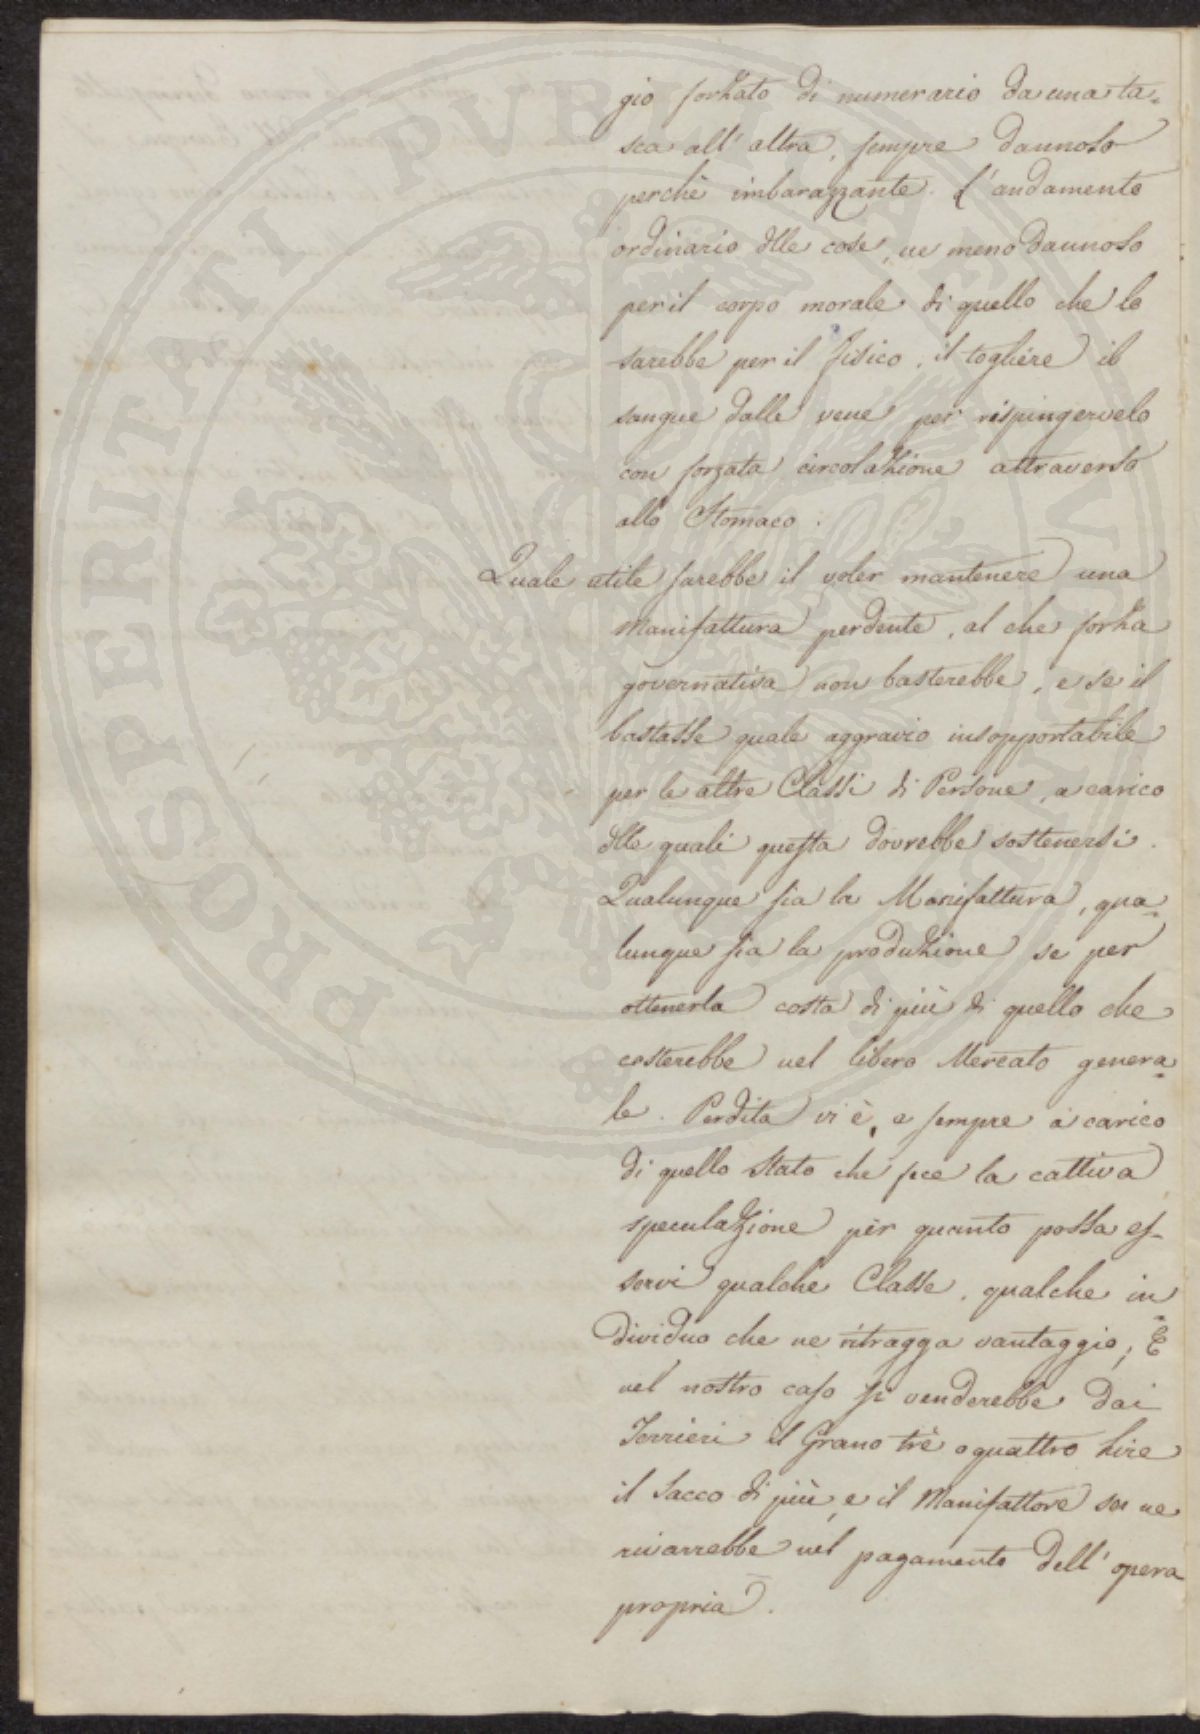 gio forzato di numerario da una ta=
sca all' altra, sempre dannoso
perchè imbarazzante. L'andamento
ordinario dlle cose, ne meno dannoso
per il corpo morale di quello che lo
sarebbe per il fisico, il togliere il
sangue dalle vene per rispingervelo
con forzata circolazione attraverso
allo Stomaco.
Quale utile sarebbe il voler mantenere una
Manifattura perdente, al che forza
governativa non basterebbe, e se il
bastasse quale aggravio insopportabile
per le altre Classi di Persone, a carico
dlle quali questa dovrebbe sostenersi.
Qualunque sia la Manifattura, qua=
lunque sia la produzione se per
ottenerla costa di più di quello che
costerebbe nel libero Mercato genera=
le. Perdita vi è, e sempre à carico
di quello Stato che fece la cattiva
speculazione per quanto possa es-
servi qualche Classe, qualche in=
dividuo che ne ritragga vantaggio; E
nel nostro caso si venderebbe dai
Terrieri il Grano trè o quattro Lire
il Sacco di più, e il Manifattore se ne
rivarrebbe nel pagamento dell' opera
propria.
PROSPERITATI PVBLICAE AVGENDAE